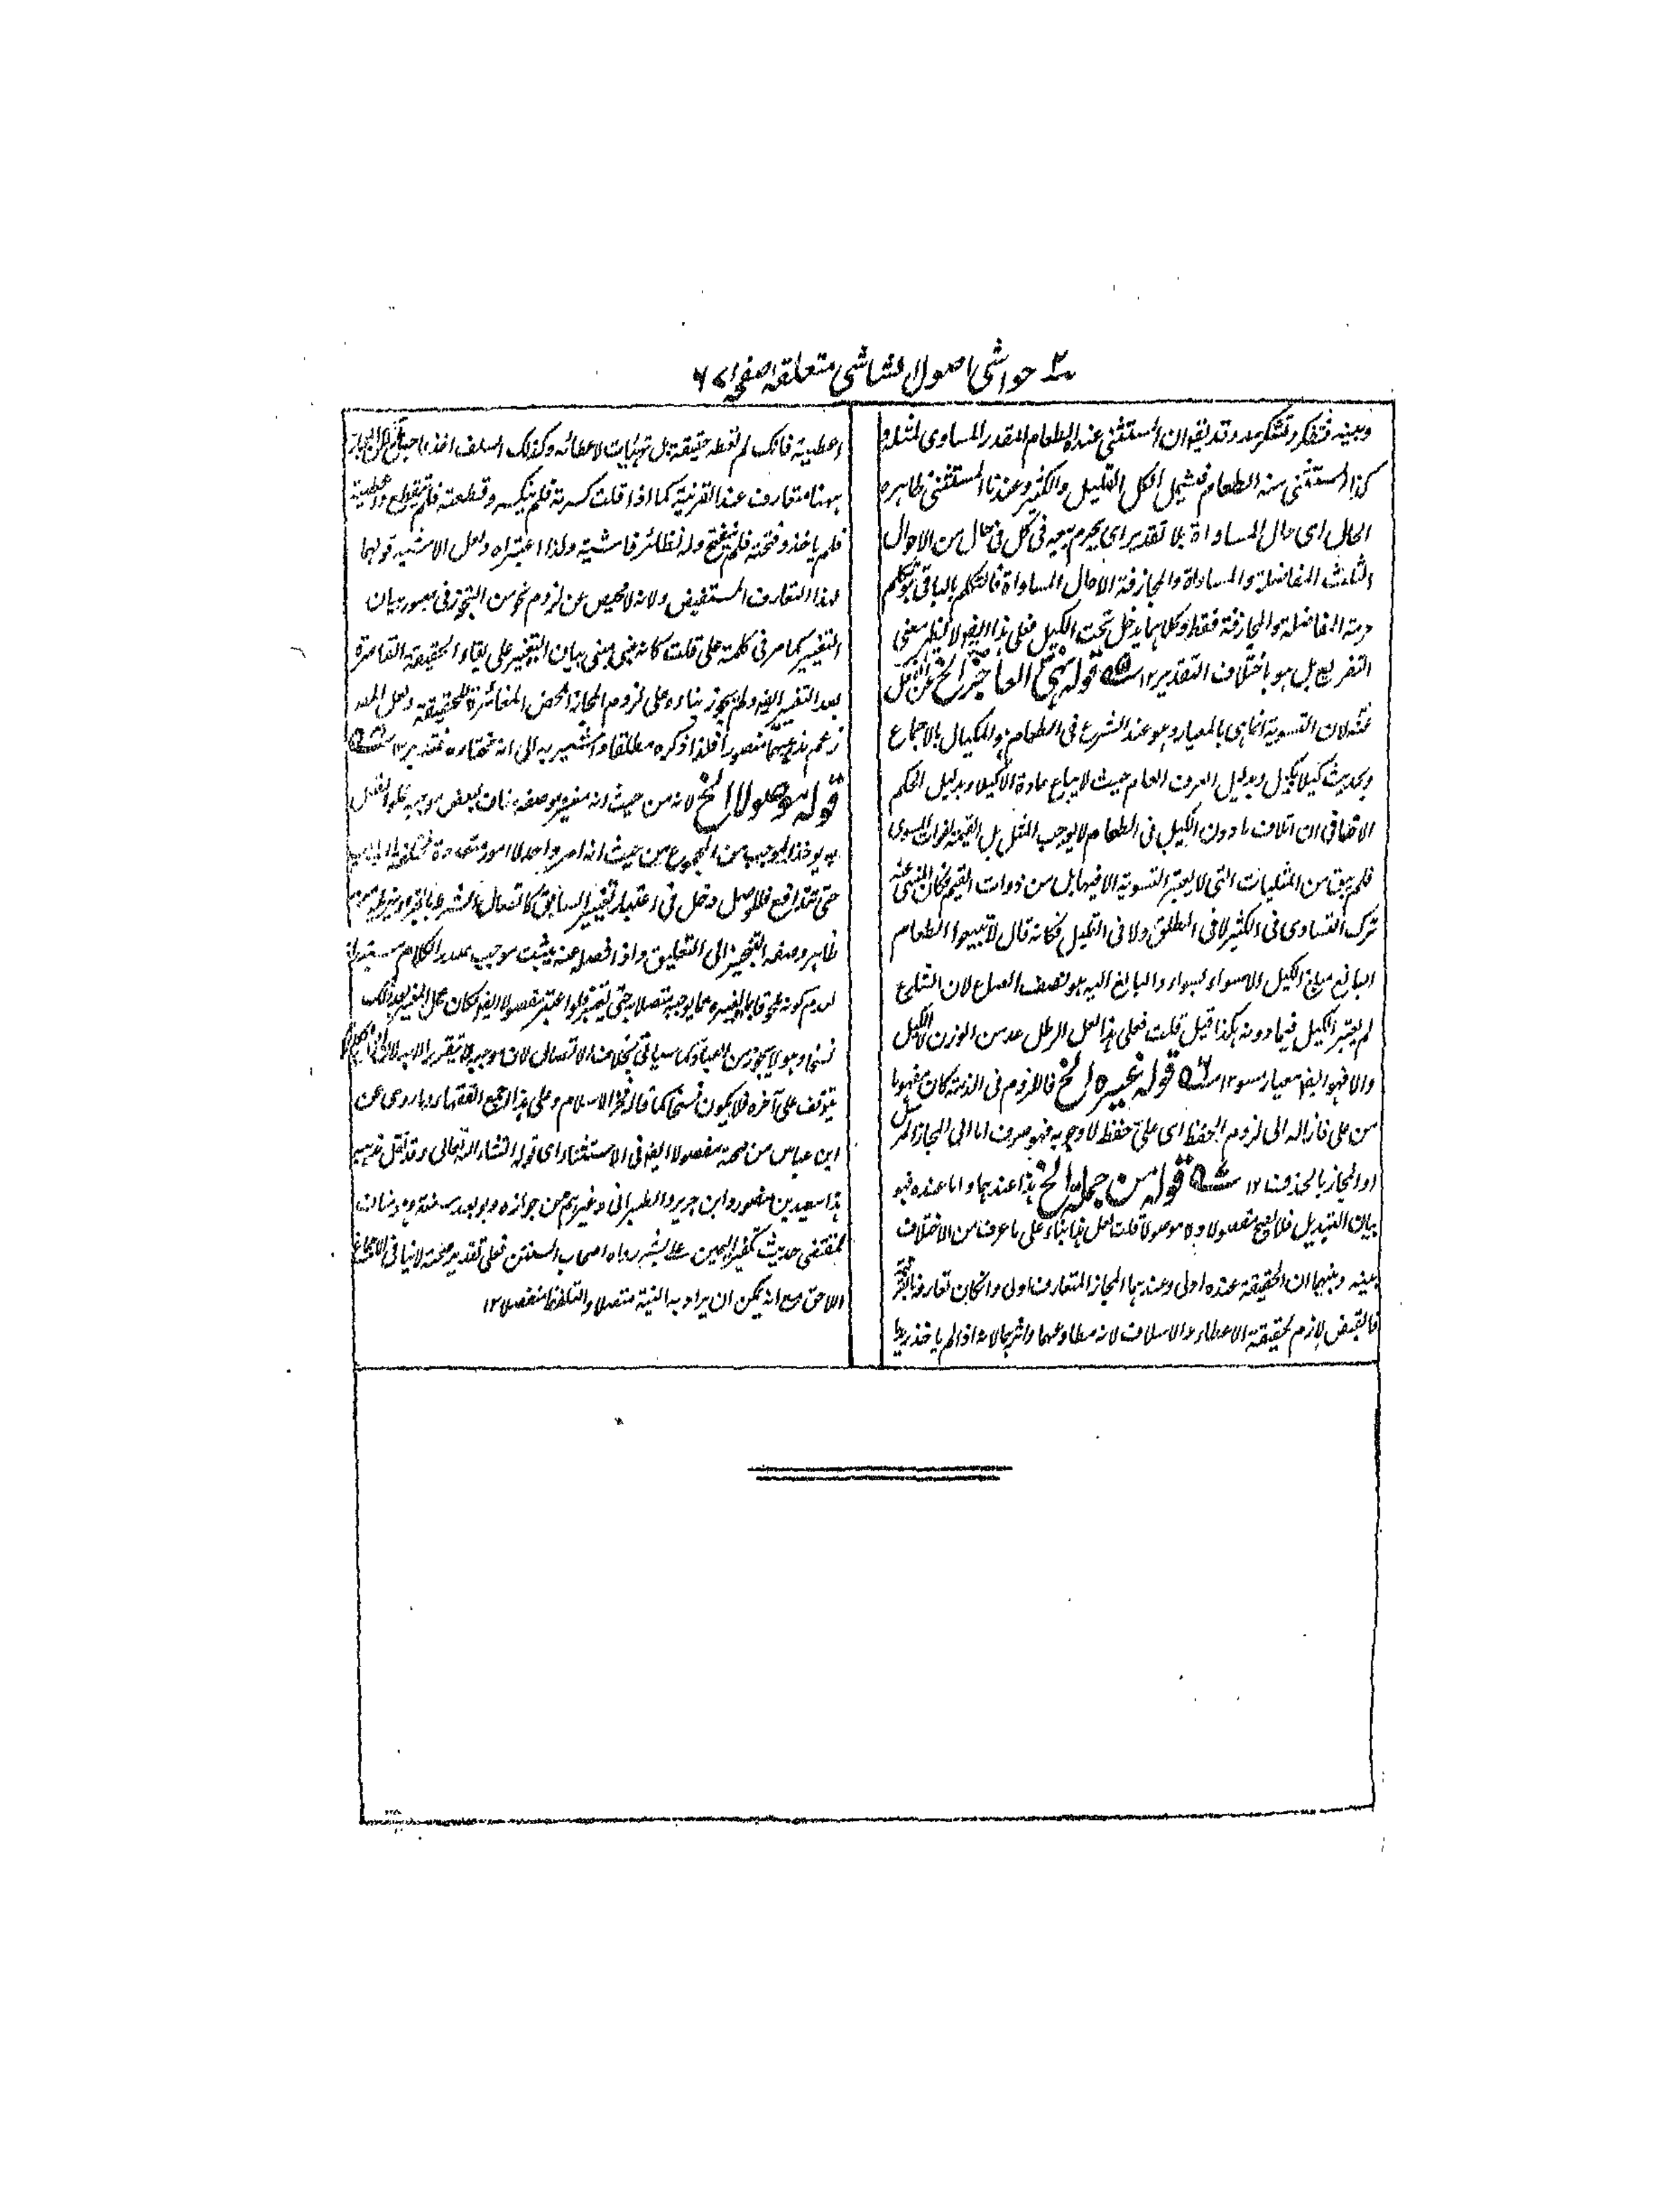 حواشی اصول الشاشی متعلقہ صفحہ ٧٦
وبينه فتفكر وتشكر وقد يقر ان المستثنى عنده الطعام المقدر المساوى لمثله و
كذا المستثنى منه الطعام فيشمل الكل القليل والكثير وعندنا المستثنى ظاهره
الحال اى حال المساواة بلا تقدير اى يحرم بيعه فى كل حال من الاحوال
الثلث المفاضلة والمساواة والمجازفة الا حال المساواة فالتكلم بالباقى تكلم
حرمة المفاضلة والمجازفة فقط وكلاهما يدخل تحت الكيل فعلى هذا ايضا لا يظهر معنى
التفريع بل هو باختلاف التقدير ١٢ قوله نهى العاجز الخ
عنه لان التسوية انما هى بالمعيار وهو عند الشرع فى الطعام هو المكيال بالاجماع
وبحديث كيلا بكيل وبدليل العرف العام حيث لا يباع عادة الا كيلا وبدليل الحكم
الاتفاقى ان اتلاف ما دون الكيل فى الطعام لا يوجب المثل بل القيمة لفوات المسوى
فلم يبق من المثليات التى لا يعتبر التسوية الا فيها بل من ذوات القيم فكان المنهى عنه
ترك التساوى فى الكثير لا فى المطلق ولا فى القليل فكانه قال لا تبيعوا الطعام
البالغ مبلغ الكيل الا سواء بسواء والبالغ اليه هو نصف الصاع لان الشارع
لم يعتبر الكيل فيما دونه هكذا قيل قلت فعلى هذا لعل الرطل عد من الوزن لا الكيل
والا فهو ايضا معيار ١٢ قوله غيره الخ فاللزوم فى الذمة كان مفهوما
من على فازاله الى لزوم الحفظ اى على حفظ لا وجوبه فهو صرف اما الى المجاز المرسل
او المجاز بالحذف ١٢ قوله من جملة الخ هذا عندهما واما عنده فهو
بيان التبديل فلا يصح مفصولا ولا موصولا قلت لعل هذا بناء على ما عرف من الاختلاف
بينه وبينهما ان الحقيقة عنده اولى وعندهما المجاز المتعارف اولى وان كان تعارفه
فالقبض لازم لحقيقة الاعطاء والاسلاف لانه مطاوعهما واثرهما لانه اذا لم ياخذ زيد ما
اعطيته فانك لم تعطه حقيقة بل تهيأت لاعطائه وكذلك اسلف اخذا
ههنا متعارف عند القرينة كما اذا قلت كسرته فلم ينكسر وقطعته فلم ينقطع واعطيته
فلم ياخذ وفتحته فلم ينفتح وله نظائر فاشية ولذا اعتبراه ولعل الاشبه قولهما
لهذا التعارف المستفيض ولانه لا محيص عن لزوم نحو من التجوز فى صور بيان
التغيير كما مر فى كلمة على قلت كانه مبنى بيان التغيير على بقاء الحقيقة القاصرة
بعد التغيير ايضا ولم يجوز بناءه على لزوم المجاز المحض المغائر للحقيقة ولعل المص
زعم مذهبهما منصورا فلذا ذكره مطلقا واشير به الى انه مختاره فتدبر ١٢
قوله موصولا الخ لانه من حيث انه مغير
يؤخذ الموجب من المجموع من حيث انه امر واحد لا امور متعددة مختلفة
حتى تتدافع فللوصل دخل فى اعتبار تغيير السابق كاتصال الشرط
ظاهر وصفه التنجيز الى التعليق واذا فصل عنه يثبت موجب صدر الكلام
لعدم كونه ملحقا بما يغيره عما يوجبه متصلا حتى يتغير فلو اعتبر مفصولا ايضا لكان عمل المغير بعد ذلك
نسخا وهو لا يجوز من العباد كما سياتى بخلاف الاتصال لان موجبه لا يتقرر
يتوقف على آخره فلا يكون نسخا كما قال فخر الاسلام وعلى هذا اجمع الفقهاء وما روى عن
ابن عباس من صحته مفصولا ايضا فى الاستثناء اى قوله انشاء الله تعالى وقد نقل مذهبه
هذا سعيد بن منصور وابن جرير والطبرانى وغيرهم من جوازه ولو بعد سنة
لمقتضى حديث تكفير اليمين رواه اصحاب السنن فعلى تقدير صحته لا ينافى الاجماع
اللاحق مع انه يمكن ان يراد به النية متصلا والتلفظ منفصلا ١٢